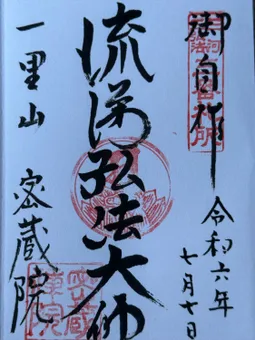 御自作
令和六年
七月十日
流涕弘法大師
一里山 密蔵院